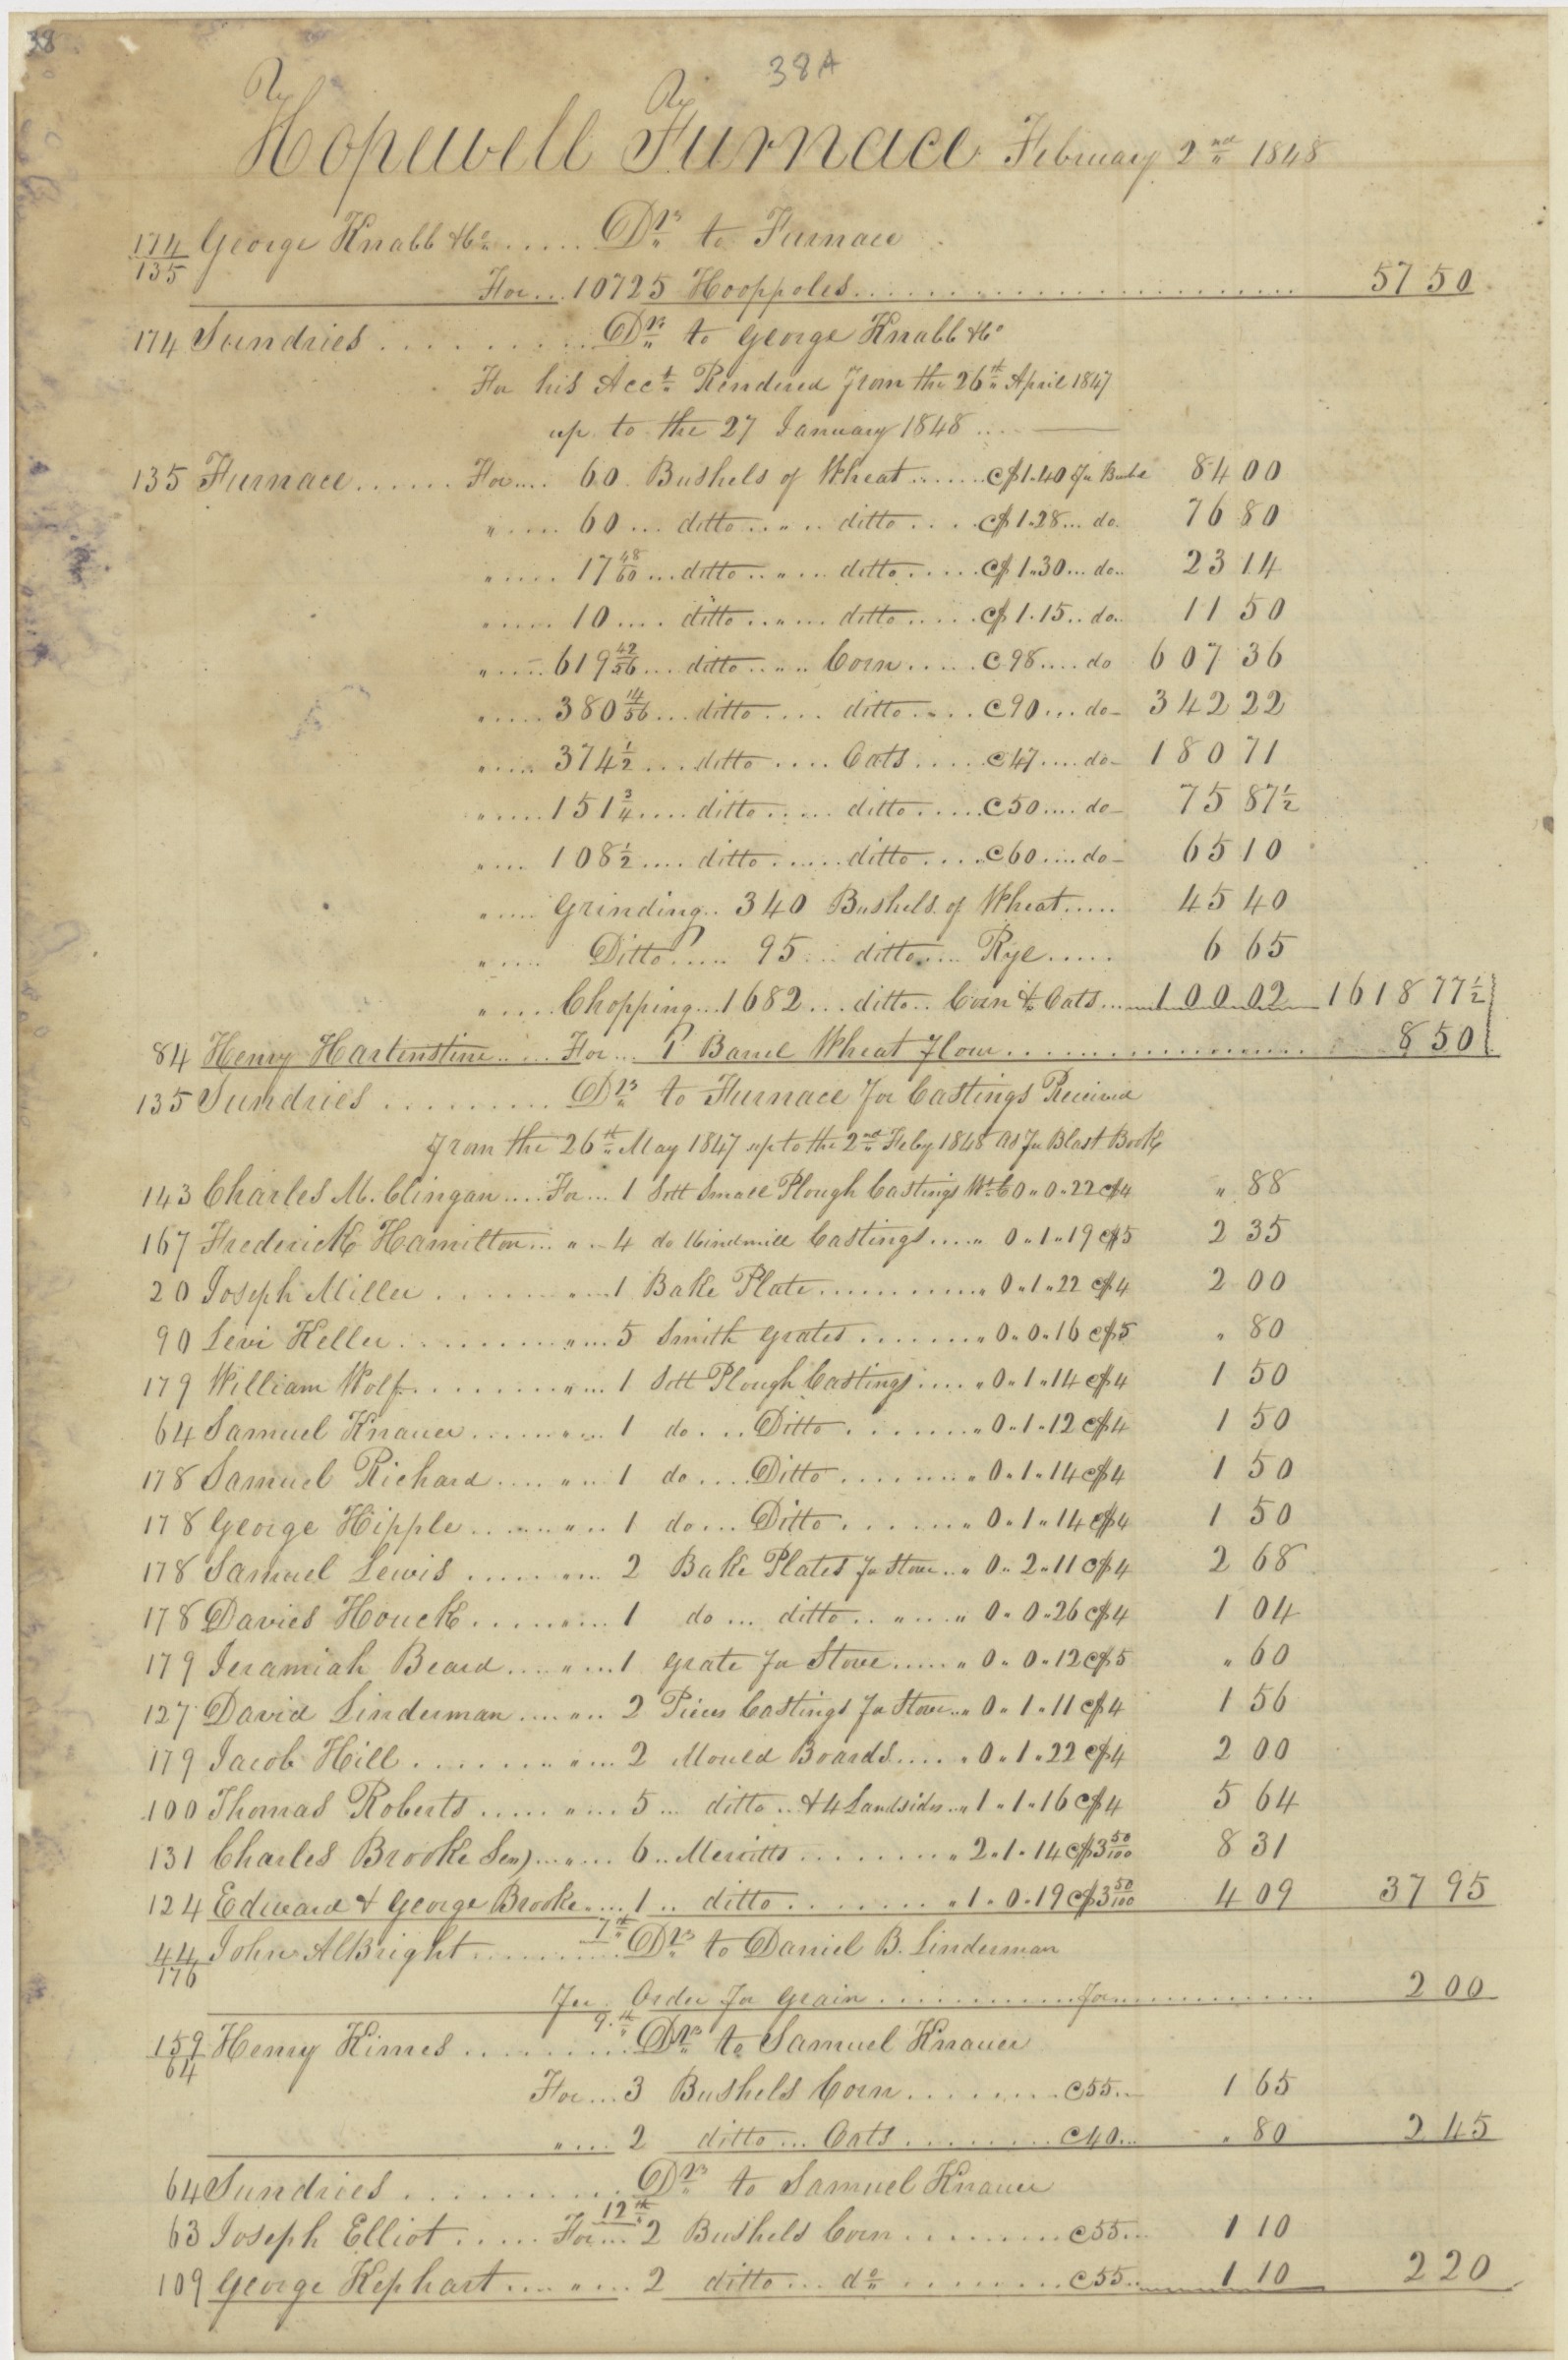 38
38A
Hopewell Furnace February 2nd 1848
174/135 George Knabb &Co ..... Dr to Furnace
For... 10725 Hooppoles ..... 57 50
174 Sundries ..... Dr to George Knabb &Co
For his Acct Rendered from the 26th April 1847
up to the 27 January 1848 ....
135 Furnace ...... For.... 60 Bushels of Wheat ...... @$1.40 Per Bushel 84 00
" .... 60 ... ditto .. " .. ditto .... @$1.28 ... do. 76 80
" .... 17 48/60 ... ditto .. " ... ditto ..... @$1.30 ... do.. 23 14
" .... 10 .... ditto .. " ... ditto ..... @$1.15 .. do.. 11 50
" .... 619 42/56 ... ditto .. " .. Corn ..... @98 .... do 607 36
" .... 380 14/56 ... ditto .... ditto .... @90 ... do 342 22
" .... 374 1/2 .... ditto .... Oats ..... @47 .... do 180 71
" .... 151 3/4 .... ditto ..... ditto ..... @50 .... do 75 87 1/2
" .... 108 1/2 .... ditto ...... ditto .... @60 .... do 65 10
" .... Grinding .. 340 Bushels of Wheat ..... 45 40
" .... Ditto ..... 95 ... ditto .... Rye ..... 6 65
" .... Chopping ... 1682 ... ditto .. Corn & Oats ... 100 02 1618 77 1/2
84 Henry Hartenstine ..... For ... 1 Barrel Wheat flour ..... 8 50
135 Sundries ......... Dr to Furnace for Castings Received
from the 26th May 1847 up to the 2nd Feby 1848 as Per Blast Book
143 Charles M. Clingan .... For ... 1 Sett Small Plough Castings Wt C 0 " 0 " 22 @$4 " 88
167 Frederick Hamilton ... " .. 4 do Windmill Castings .... " 0 " 1 " 19 @$5 2 35
20 Joseph Miller ....... " ... 1 Bake Plate ........... " 0 " 1 " 22 @$4 2 00
90 Levi Heller ........ " ... 5 Smith Grates ....... " 0 " 0 " 16 @$5 " 80
179 William Wolf ........ " ... 1 Sett Plough Castings .... " 0 " 1 " 14 @$4 1 50
64 Samuel Knauer ...... " ... 1 do ... Ditto ....... " 0 " 1 " 12 @$4 1 50
178 Samuel Richard .... " ... 1 do .... Ditto ....... " 0 " 1 " 14 @$4 1 50
178 George Hipple ...... " .. 1 do ... Ditto ...... " 0 " 1 " 14 @$4 1 50
178 Samuel Lewis ...... " ... 2 Bake Plates for Stove .. " 0 " 2 " 11 @$4 2 68
178 Davies Houck ...... " ... 1 do ... ditto .. " .... " 0 " 0 " 26 @$4 1 04
179 Jeramiah Beard .... " ... 1 Grate for Stove ..... " 0 " 0 " 12 @$5 " 60
127 David Linderman .... " .. 2 Pieces Castings for Stove .. " 0 " 1 " 11 @$4 1 56
179 Jacob Hill ....... " ... 2 Mould Boards ..... " 0 " 1 " 22 @$4 2 00
100 Thomas Roberts ..... " ... 5 ... ditto .. & 4 Landsides .. " 1 " 1 " 16 @$4 5 64
131 Charles Brooke Sen) ... " ... 6 .. Merritts ......... " 2 " 1 " 14 @$3 50/100 8 31
124 Edward & George Brooke " ... 1 .. ditto ........ " 1 " 0 " 19 @$3 50/100 4 09 37 95
7th
44/176 John Albright .......... Dr to Daniel B. Linderman
Per Order for Grain .......... for .......... 2 00
9th
159/64 Henry Kimes ......... Dr to Samuel Knauer
For ... 3 Bushels Corn ........ @55 .. 1 65
" .... 2 ditto ... Oats ........ @40 ... " 80 2 45
64 Sundries .......... Dr to Samuel Knauer
12th
63 Joseph Elliot ..... For ... 2 Bushels Corn ......... @55 ... 1 10
109 George Kephart .... " ... 2 ditto ... do ........ @55 .. 1 10 2 20